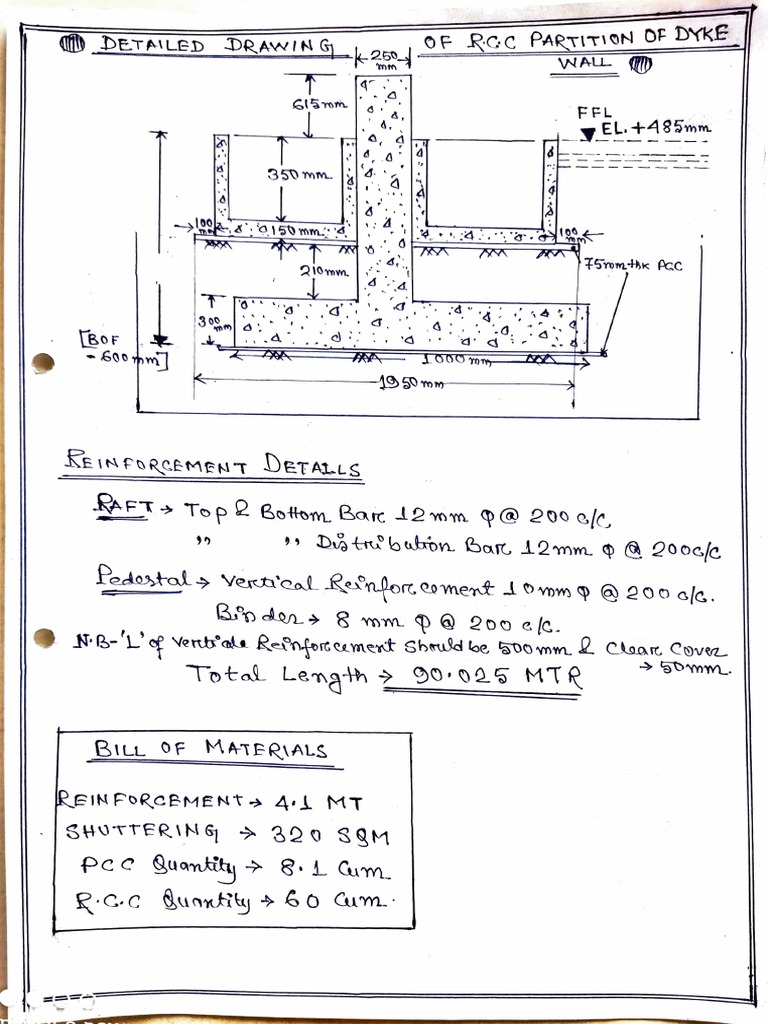 DETAILED DRAWING OF R.C.C PARTITION OF DYKE
WALL
250
mm
615mm
FFL
EL. +485mm
350mm
100
mm
150mm
100
mm
210mm
75mm thk PCC
300
mm
[BOF
-600mm]
1000mm
1950mm
REINFORCEMENT DETAILS
RAFT → Top & Bottom Bar 12mm φ @ 200 c/c
" " Distribution Bar 12mm φ @ 200c/c
Pedestal → Vertical Reinforcement 10mm φ @ 200 c/c.
Binder → 8 mm φ @ 200 c/c.
N.B-'L' of Verticale Reinforcement Should be 500mm & Clear Cover
→ 50mm.
Total Length → 90.025 MTR
BILL OF MATERIALS
REINFORCEMENT → 4.1 MT
SHUTTERING → 320 SQM
PCC Quantity → 8.1 Cum
R.C.C Quantity → 60 Cum.